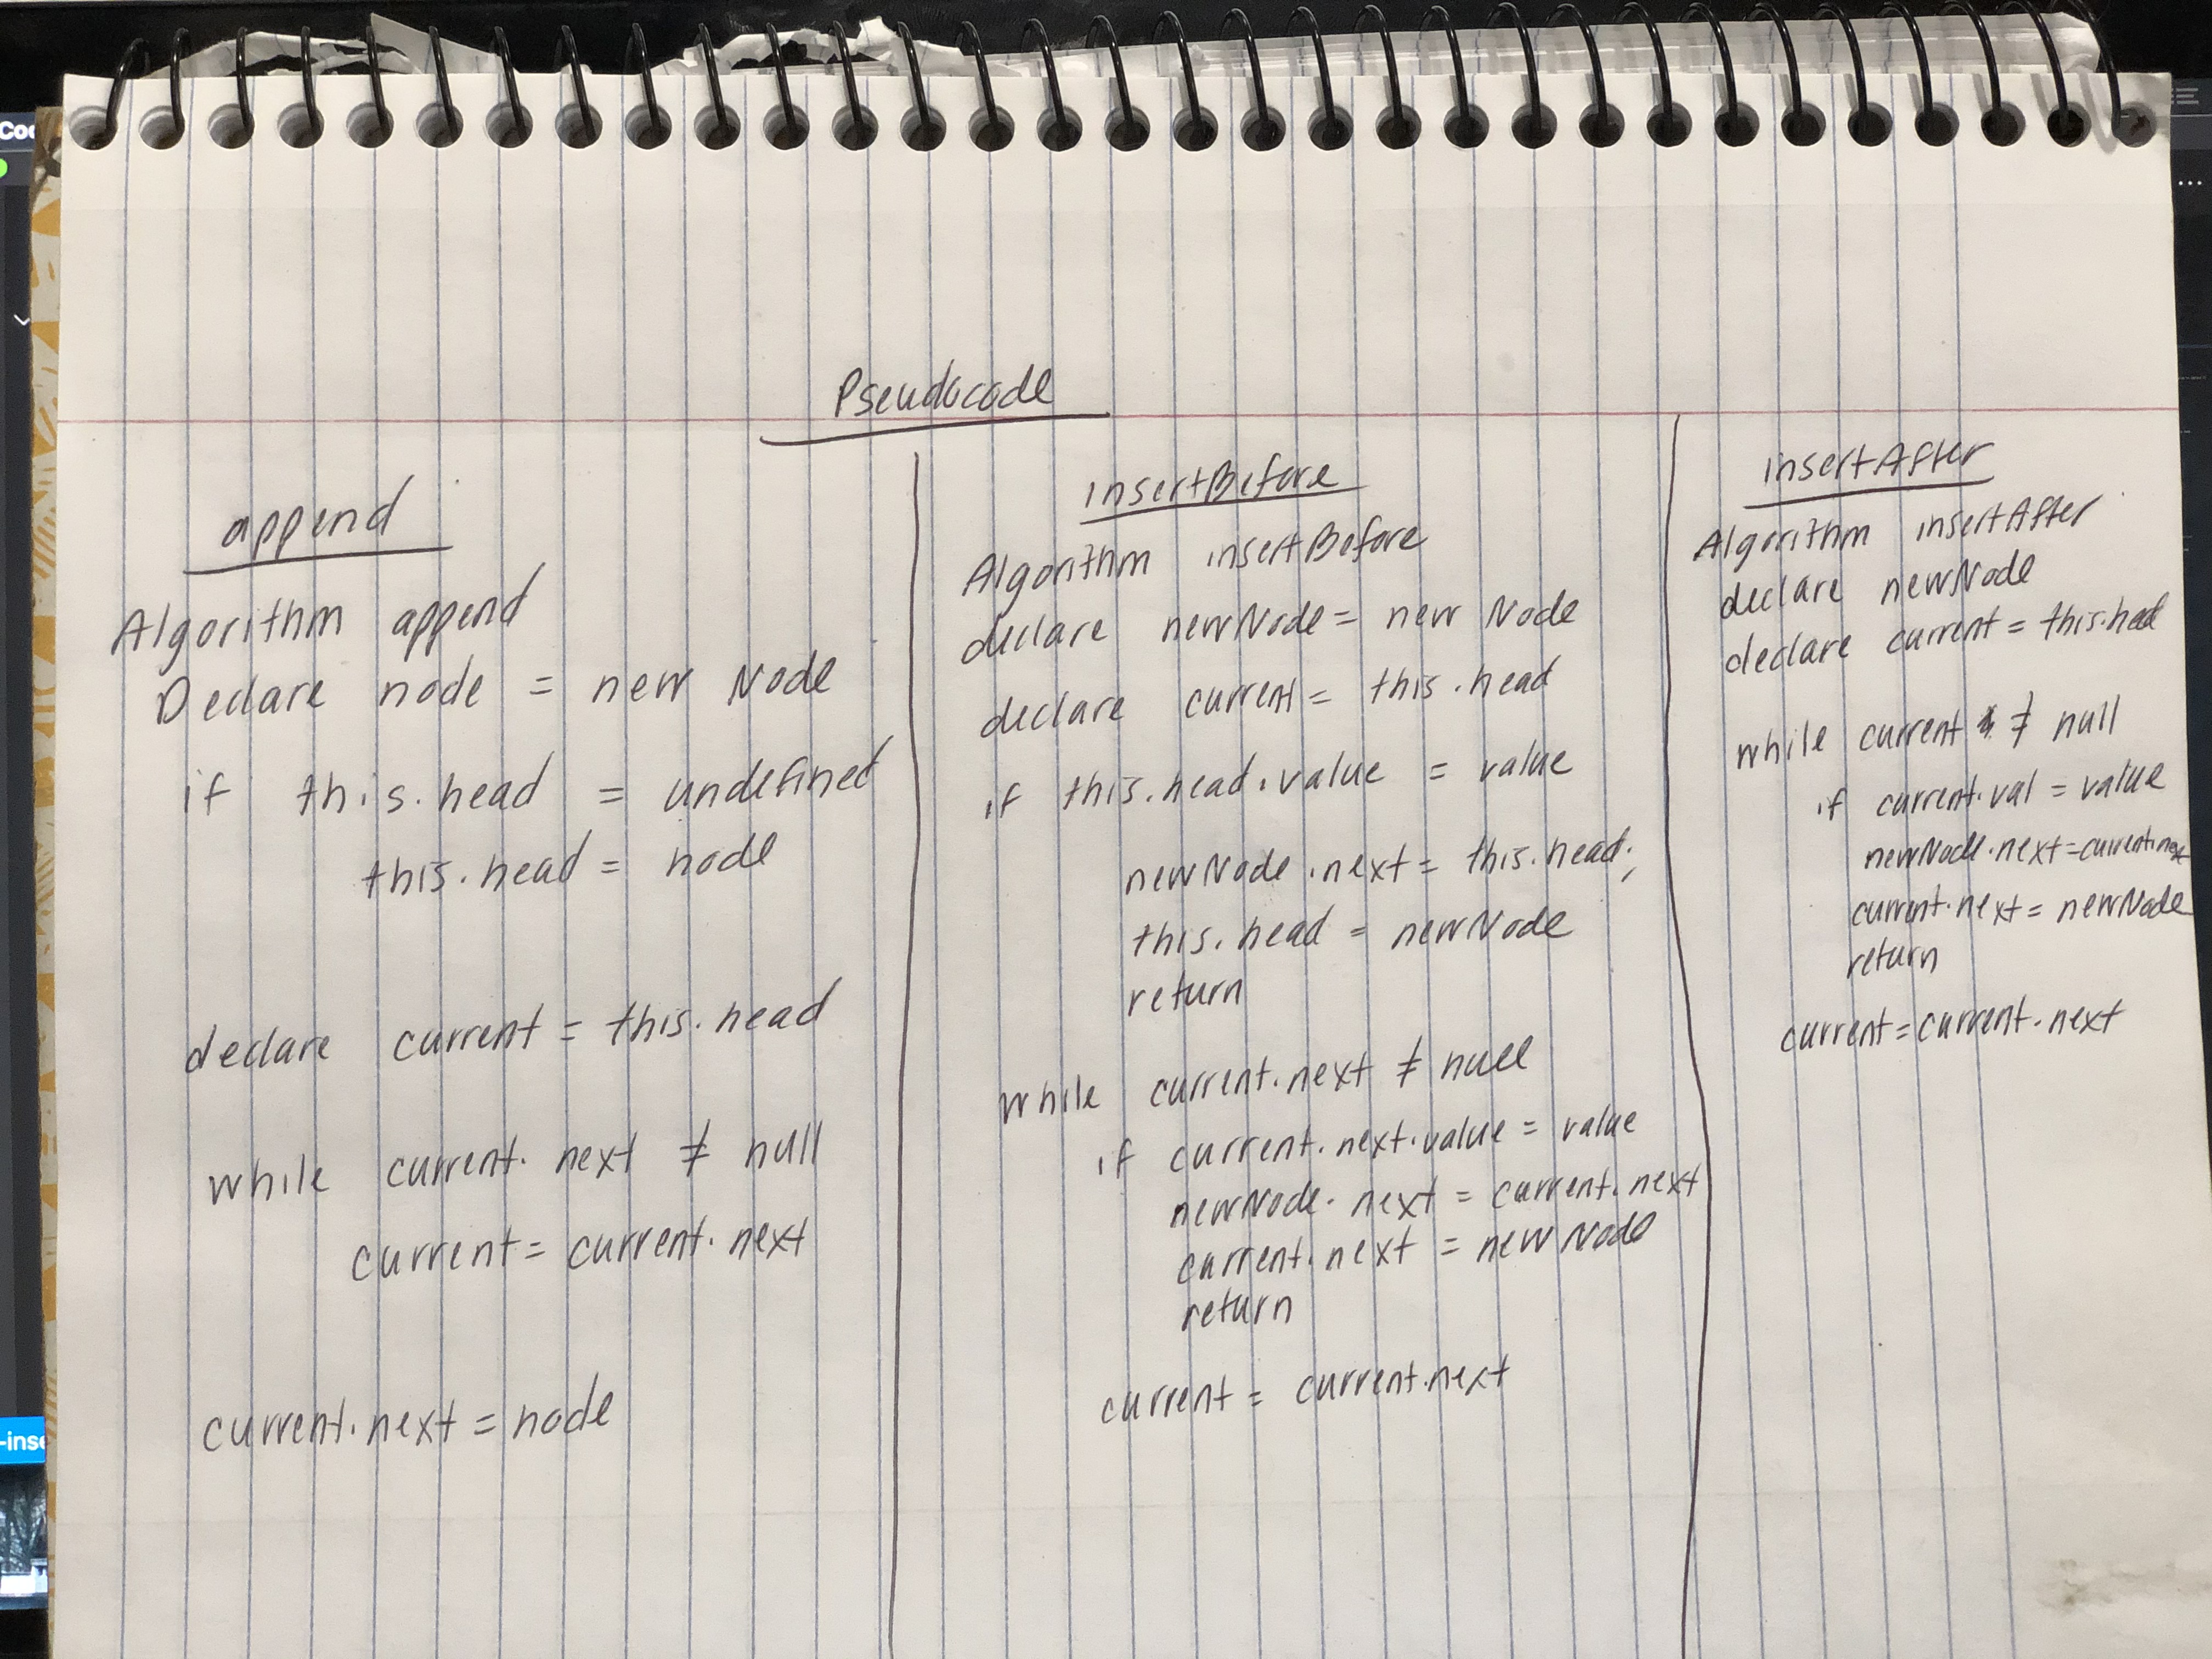 Pseudocode
append
Algorithm append
Declare node = new Node
if this.head = undefined
this.head = node
declare current = this.head
while current.next ≠ null
current = current.next
current.next = node
insertBefore
Algorithm insertBefore
declare newNode = new Node
declare current = this.head
if this.head.value = value
newNode.next = this.head;
this.head = newNode
return
while current.next ≠ null
if current.next.value = value
newNode.next = current.next
current.next = newNode
return
current = current.next
insertAfter
Algorithm insertAfter
declare newNode
declare current = this.head
while current ≠ null
if current.val = value
newNode.next = current.next
current.next = newNode
return
current = current.next
-inse